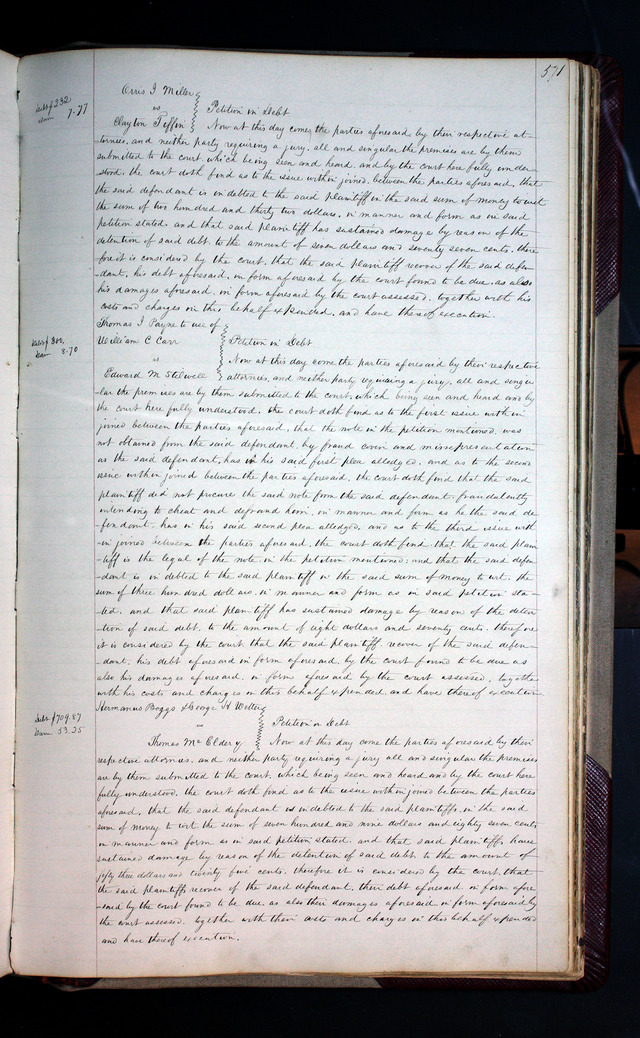 571
Orris I Miller
Debt $232
Dam 7-77
vs
Petition in Debt
Clayton Tiffin
Now at this day comes the parties aforesaid by their respective at
-tornies, and neither party requiring a jury, all and singular the premises are by them
submitted to the court which being seen and heard, and by the court here fully under
-stood, the court doth find as to the issue within joined, between the parties aforesaid, that
the said defendant is indebted to the said plaintiff in the said sum of money to wit
the sum of two hundred and thirty two dollars, in manner and form as in said
petition stated and that said plaintiff has sustained damage by reason of the
detention of said debt to the amount of seven dollars and seventy seven cents. there
fore it is considered by the court, that the said plaintiff recover of the said defen
-dant, his debt aforesaid, in form aforesaid by the court found to be due, as also
his damages aforesaid, in form aforesaid by the court assessed, together with his
costs and charges in this behalf expended, and have thereof execution.
Thomas I Payne to use of
William C Carr
Debt $300,
Dam 8-70
Petition in Debt
vs
Now at this day come the parties aforesaid by their respective
Edward M Stilwell
attornies, and neither party requiring a jury, all and singu
-lar the premises are by them submitted to the court, which being seen and heard and by
the court here fully understood, the court doth find as to the first issue within
joined between the parties aforesaid, that the note in the petition mentioned, was
not obtained from the said defendant, by fraud covin and misrepresentation
as the said defendant, has in his said first plea alledged, and as to the second
issue within joined between the parties aforesaid, the court doth find that the said
plaintiff did not procure the said note from the said defendant fraudulently
intending to cheat and defraud him, in manner and form as he the said de
-fendant has in his said second plea alledged, and as to the third issue with
-in joined between the parties aforesaid, the court doth find, that the said plain
-tiff is the legal of the note in the petition mentioned; and that the said defen
-dant is indebted to the said plaintiff in the said sum of money to wit. the
sum of three hundred dollars, in manner and form as in said petition sta-
-ted, and that said plaintiff has sustained damage by reason of the deten
-tion of said debt, to the amount of eight dollars and seventy cents, therefore
it is considered by the court that the said plaintiff recover of the said defen-
-dant, his debt aforesaid in form aforesaid, by the court found to be due as
also his damages aforesaid, in form aforesaid by the court assessed, together
with his costs and charges in this behalf expended, and have thereof execution
Hermanus Boggs & George H Weller
Debt $709.87
Dam 53.25
Petition in Debt
vs
Thomas Mc Eldery
Now at this day come the parties aforesaid by their
respective attornies, and neither party requiring a jury all and singular the premises
are by them submitted to the court, which being seen and heard and by the court here
fully understood, the court doth find as to the issue within joined between the parties
aforesaid, that the said defendant is indebted to the said plaintiffs, in the said
sum of money to wit the sum of seven hundred and nine dollars and eighty seven cents
in manner and form as in said petition stated, and that said plaintiffs, have
sustained damage by reason of the detention of said debt to the amount of
fifty three dollars and twenty five cents. therefore it is considered by the court, that
the said plaintiffs recover of the said defendant, their debt aforesaid in form afore
-said by the court found to be due, as also their damages aforesaid in form aforesaid by
the court assessed, together with their costs and charges in this behalf expended
and have thereof execution.